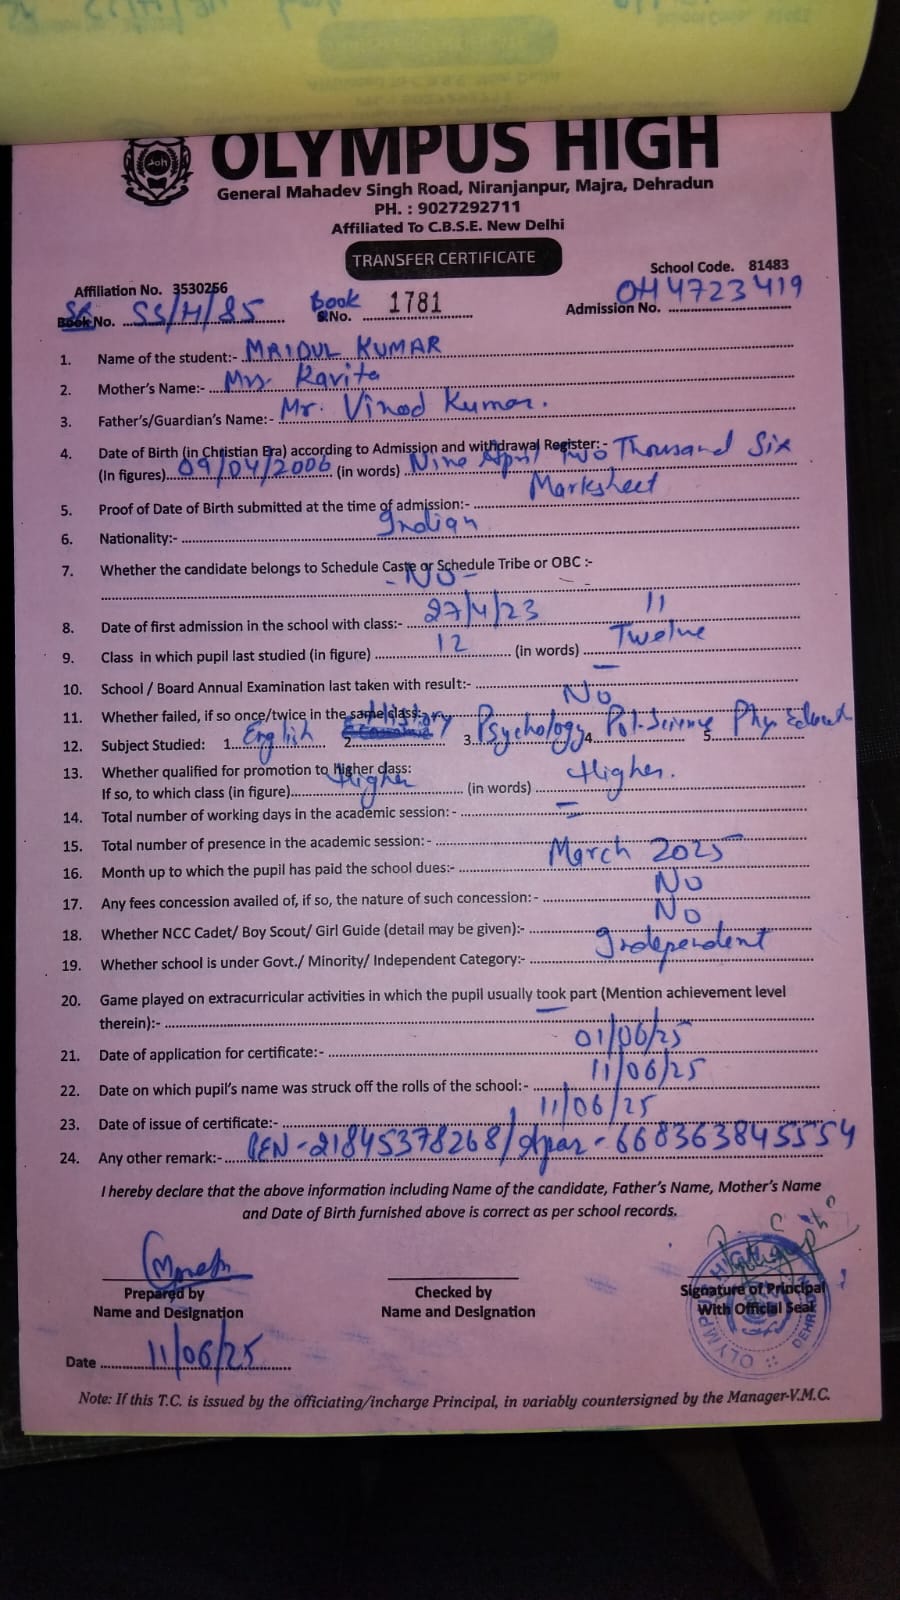 OLYMPUS HIGH
General Mahadev Singh Road, Niranjanpur, Majra, Dehradun
PH. : 9027292711
Affiliated To C.B.S.E. New Delhi
TRANSFER CERTIFICATE
Affiliation No. 3530256
School Code. 81483
SR Book No. SS/H/85 Book S.No. 1781 Admission No. OH4723419
1. Name of the student:- MRIDUL KUMAR
2. Mother's Name:- Mrs. Kavita
3. Father's/Guardian's Name:- Mr. Vinod Kumar.
4. Date of Birth (in Christian Era) according to Admission and withdrawal Register:-
(In figures) 09/04/2006 (in words) Nine April Two Thousand Six
5. Proof of Date of Birth submitted at the time of admission:- Marksheet
6. Nationality:- Indian
7. Whether the candidate belongs to Schedule Caste or Schedule Tribe or OBC :-
- No -
8. Date of first admission in the school with class:- 27/4/23 11
9. Class in which pupil last studied (in figure) 12 (in words) Twelve
10. School / Board Annual Examination last taken with result:- —
11. Whether failed, if so once/twice in the same class:- No
12. Subject Studied: 1. English 2. History 3. Psychology 4. Pol. Science 5. Phy. Educat
13. Whether qualified for promotion to higher class:
If so, to which class (in figure) Higher (in words) Higher.
14. Total number of working days in the academic session:- —
15. Total number of presence in the academic session:- —
16. Month up to which the pupil has paid the school dues:- March 2025
17. Any fees concession availed of, if so, the nature of such concession:- No
18. Whether NCC Cadet/ Boy Scout/ Girl Guide (detail may be given):- No
19. Whether school is under Govt./ Minority/ Independent Category:- Independent
20. Game played on extracurricular activities in which the pupil usually took part (Mention achievement level
therein):- —
21. Date of application for certificate:- 01/06/25
22. Date on which pupil's name was struck off the rolls of the school:- 11/06/25
23. Date of issue of certificate:- 11/06/25
24. Any other remark:- PEN-21845378268/Apar-668363845554
I hereby declare that the above information including Name of the candidate, Father's Name, Mother's Name
and Date of Birth furnished above is correct as per school records.
Prepared by
Name and Designation
Checked by
Name and Designation
Signature of Principal
With Official Seal
OLYMPUS HIGH DEHRADUN
Date 11/06/25
Note: If this T.C. is issued by the officiating/incharge Principal, in variably countersigned by the Manager-V.M.C.